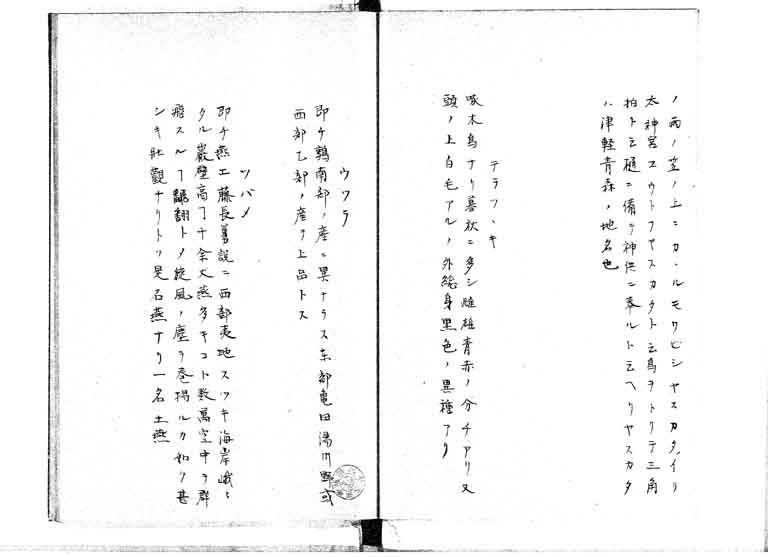 ノ雨ノ茎ノ上ニカヽルモワビシヤスカタイリ
太神宮ヱウトフヤスカタト云鳥ヲトリテ三角
拍ト云樋ニ備テ神供ニ奉ルト云ヘリヤスカタ
ハ津軽青森ノ地名也
テラツヽキ
啄木鳥ナリ暮秋ニ多シ雌雄青赤ノ分チアリ又
頭ノ上白毛アルノ外総身黒色ノ異種アリ
ウツラ
即チ鶉南部ノ産ニ異ナラス东部亀田湯川野或
西部乙部ノ産ヲ上品トス
ツバメ
即チ燕工藤長善説ニ西部夷地スツキ海岸峨々
タル巌壁高丁十余丈燕多キコト数萬空中ヲ群
飛スルヿ飜翻トメ旋風ノ塵ヲ巻揚ルカ如ク甚
シキ壯觀ナリトソ是石燕ナリ一名土燕